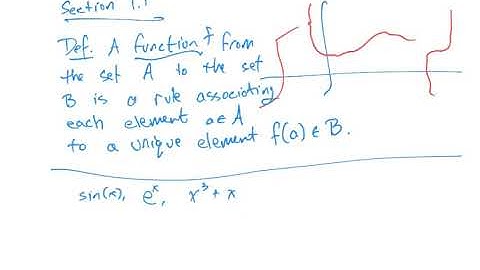 Section 1.1
Def. A function f from
the set A to the set
B is a rule associating
each element a∈A
to a unique element f(a)∈B.
sin(x), eˣ, x³+x